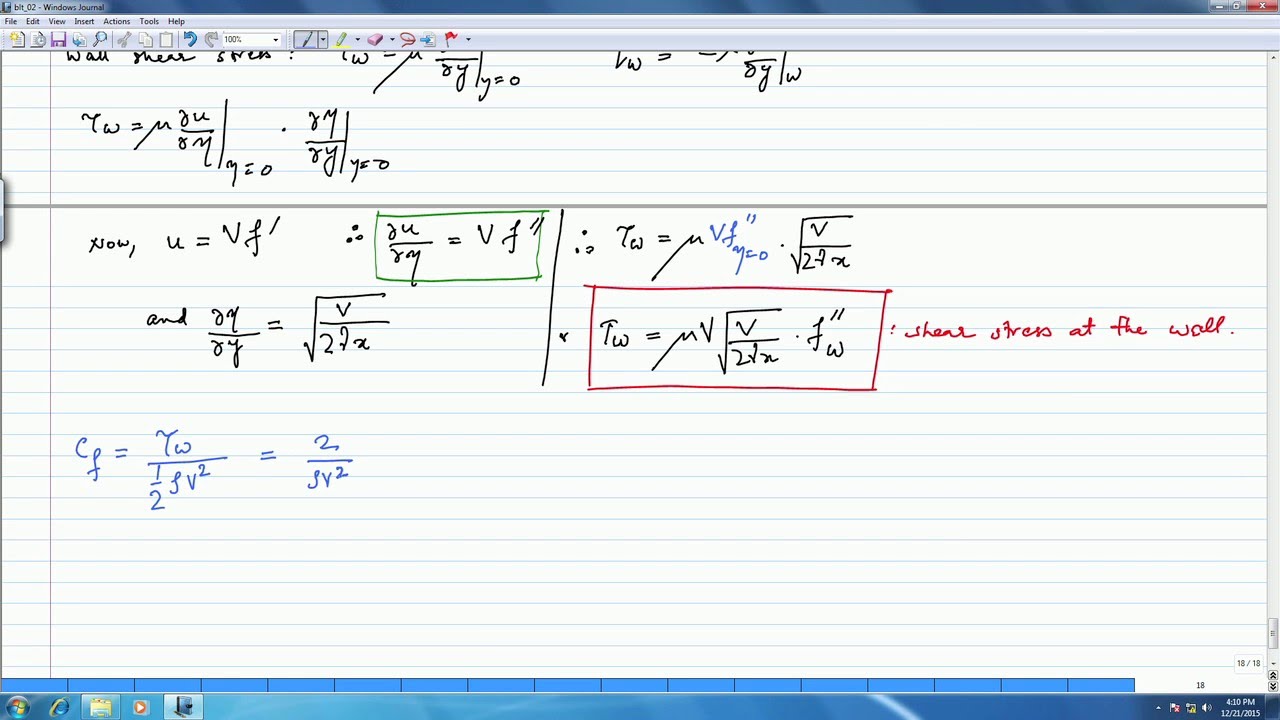 blt_02 - Windows Journal
File Edit View Insert Actions Tools Help
100%
Wall shear stress : τw = μ ∂y|y=0 τw = ∂y|w
τw = μ ∂u/∂η|η=0 · ∂η/∂y|y=0
Now, u = Vf′ ∴ ∂u/∂η = V f″ ∴ τw = μ Vf″η=0 · √(V/2νx)
and ∂η/∂y = √(V/2νx) τw = μV √(V/2νx) · f″w : shear stress at the wall.
Cf = τw / ½ρV² = 2/ρV²
18 / 18
18
4:10 PM
12/21/2015